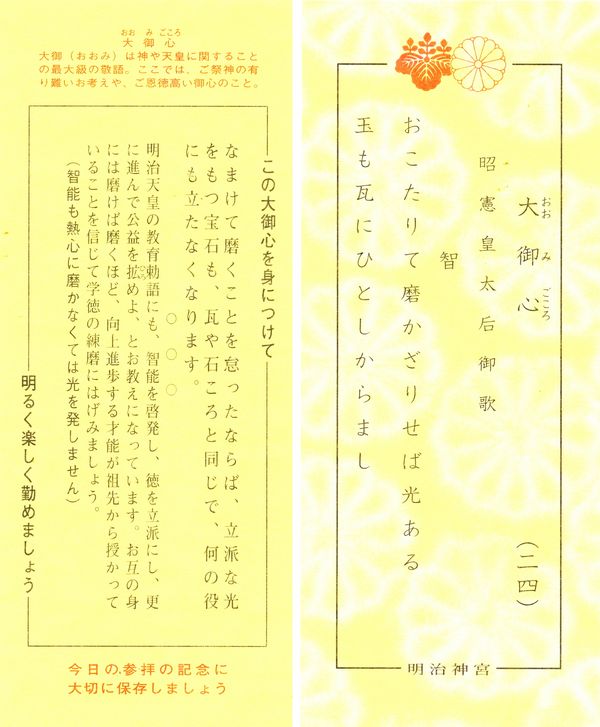 大御心
おおみごころ
(二四)
昭憲皇太后御歌
智
おこたりて磨かざりせば光ある
玉も瓦にひとしからまし
明治神宮
おおみごころ
大御心
大御(おおみ)は神や天皇に関すること
の最大級の敬語。ここでは、ご祭神の有
り難いお考えや、ご恩徳高い御心のこと。
この大御心を身につけて
なまけて磨くことを怠ったならば、立派な光
をもつ宝石も、瓦や石ころと同じで、何の役
にも立たなくなります。
○○○
明治天皇の教育勅語にも、智能を啓発し、徳を立派にし、更
に進んで公益を拡めよ、とお教えになっています。お互の身
には磨けば磨くほど、向上進歩する才能が祖先から授かって
いることを信じて学徳の練磨にはげみましょう。
(智能も熱心に磨かなくては光を発しません)
明るく楽しく勤めましょう
今日の.参拝の記念に
大切に保存しましょう